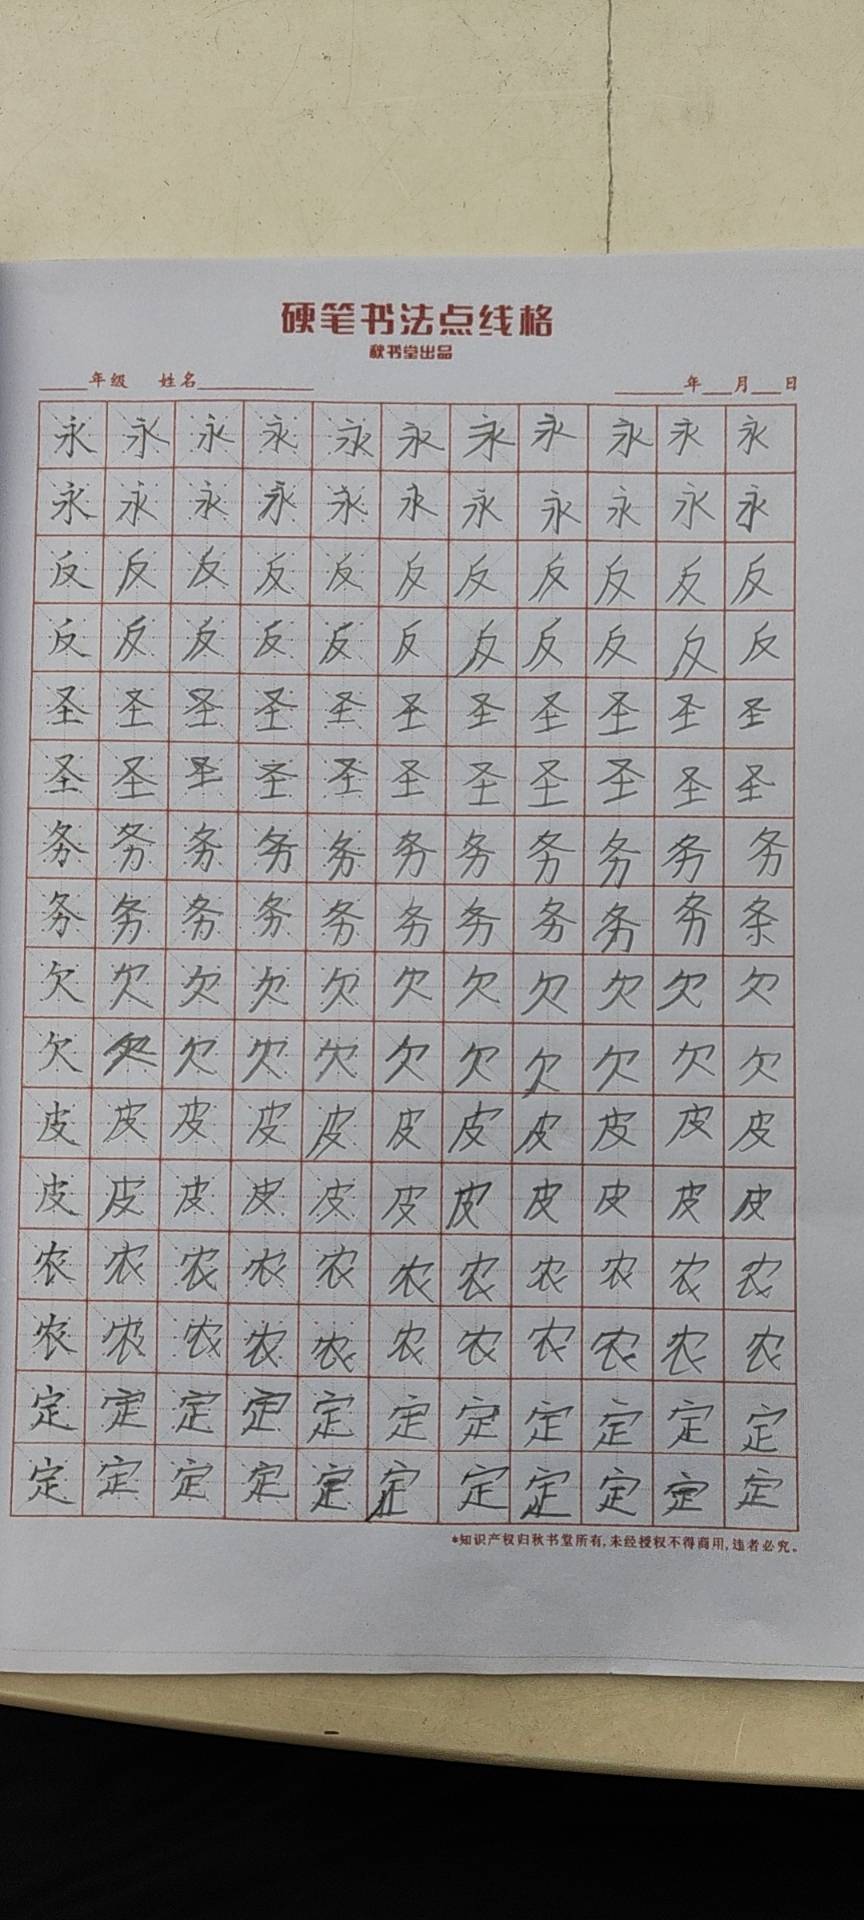 硬笔书法点线格
秋书堂出品
年级 姓名 年 月 日
永永永永永永永永永永永
永永永永永永永永永永永
反反反反反反反反反反反
反反反反反反反反反反反
圣圣圣圣圣圣圣圣圣圣圣
圣圣圣圣圣圣圣圣圣圣圣
务务务务务务务务务务务
务务务务务务务务务务条
欠欠欠欠欠欠欠欠欠欠欠
欠欠欠欠欠欠欠欠欠欠欠
皮皮皮皮皮皮皮皮皮皮皮
皮皮皮皮皮皮皮皮皮皮皮
农农农农农农农农农农农
农农农农农农农农农农农
定定定定定定定定定定定
定定定定定定定定定定定
*知识产权归秋书堂所有,未经授权不得商用,违者必究。